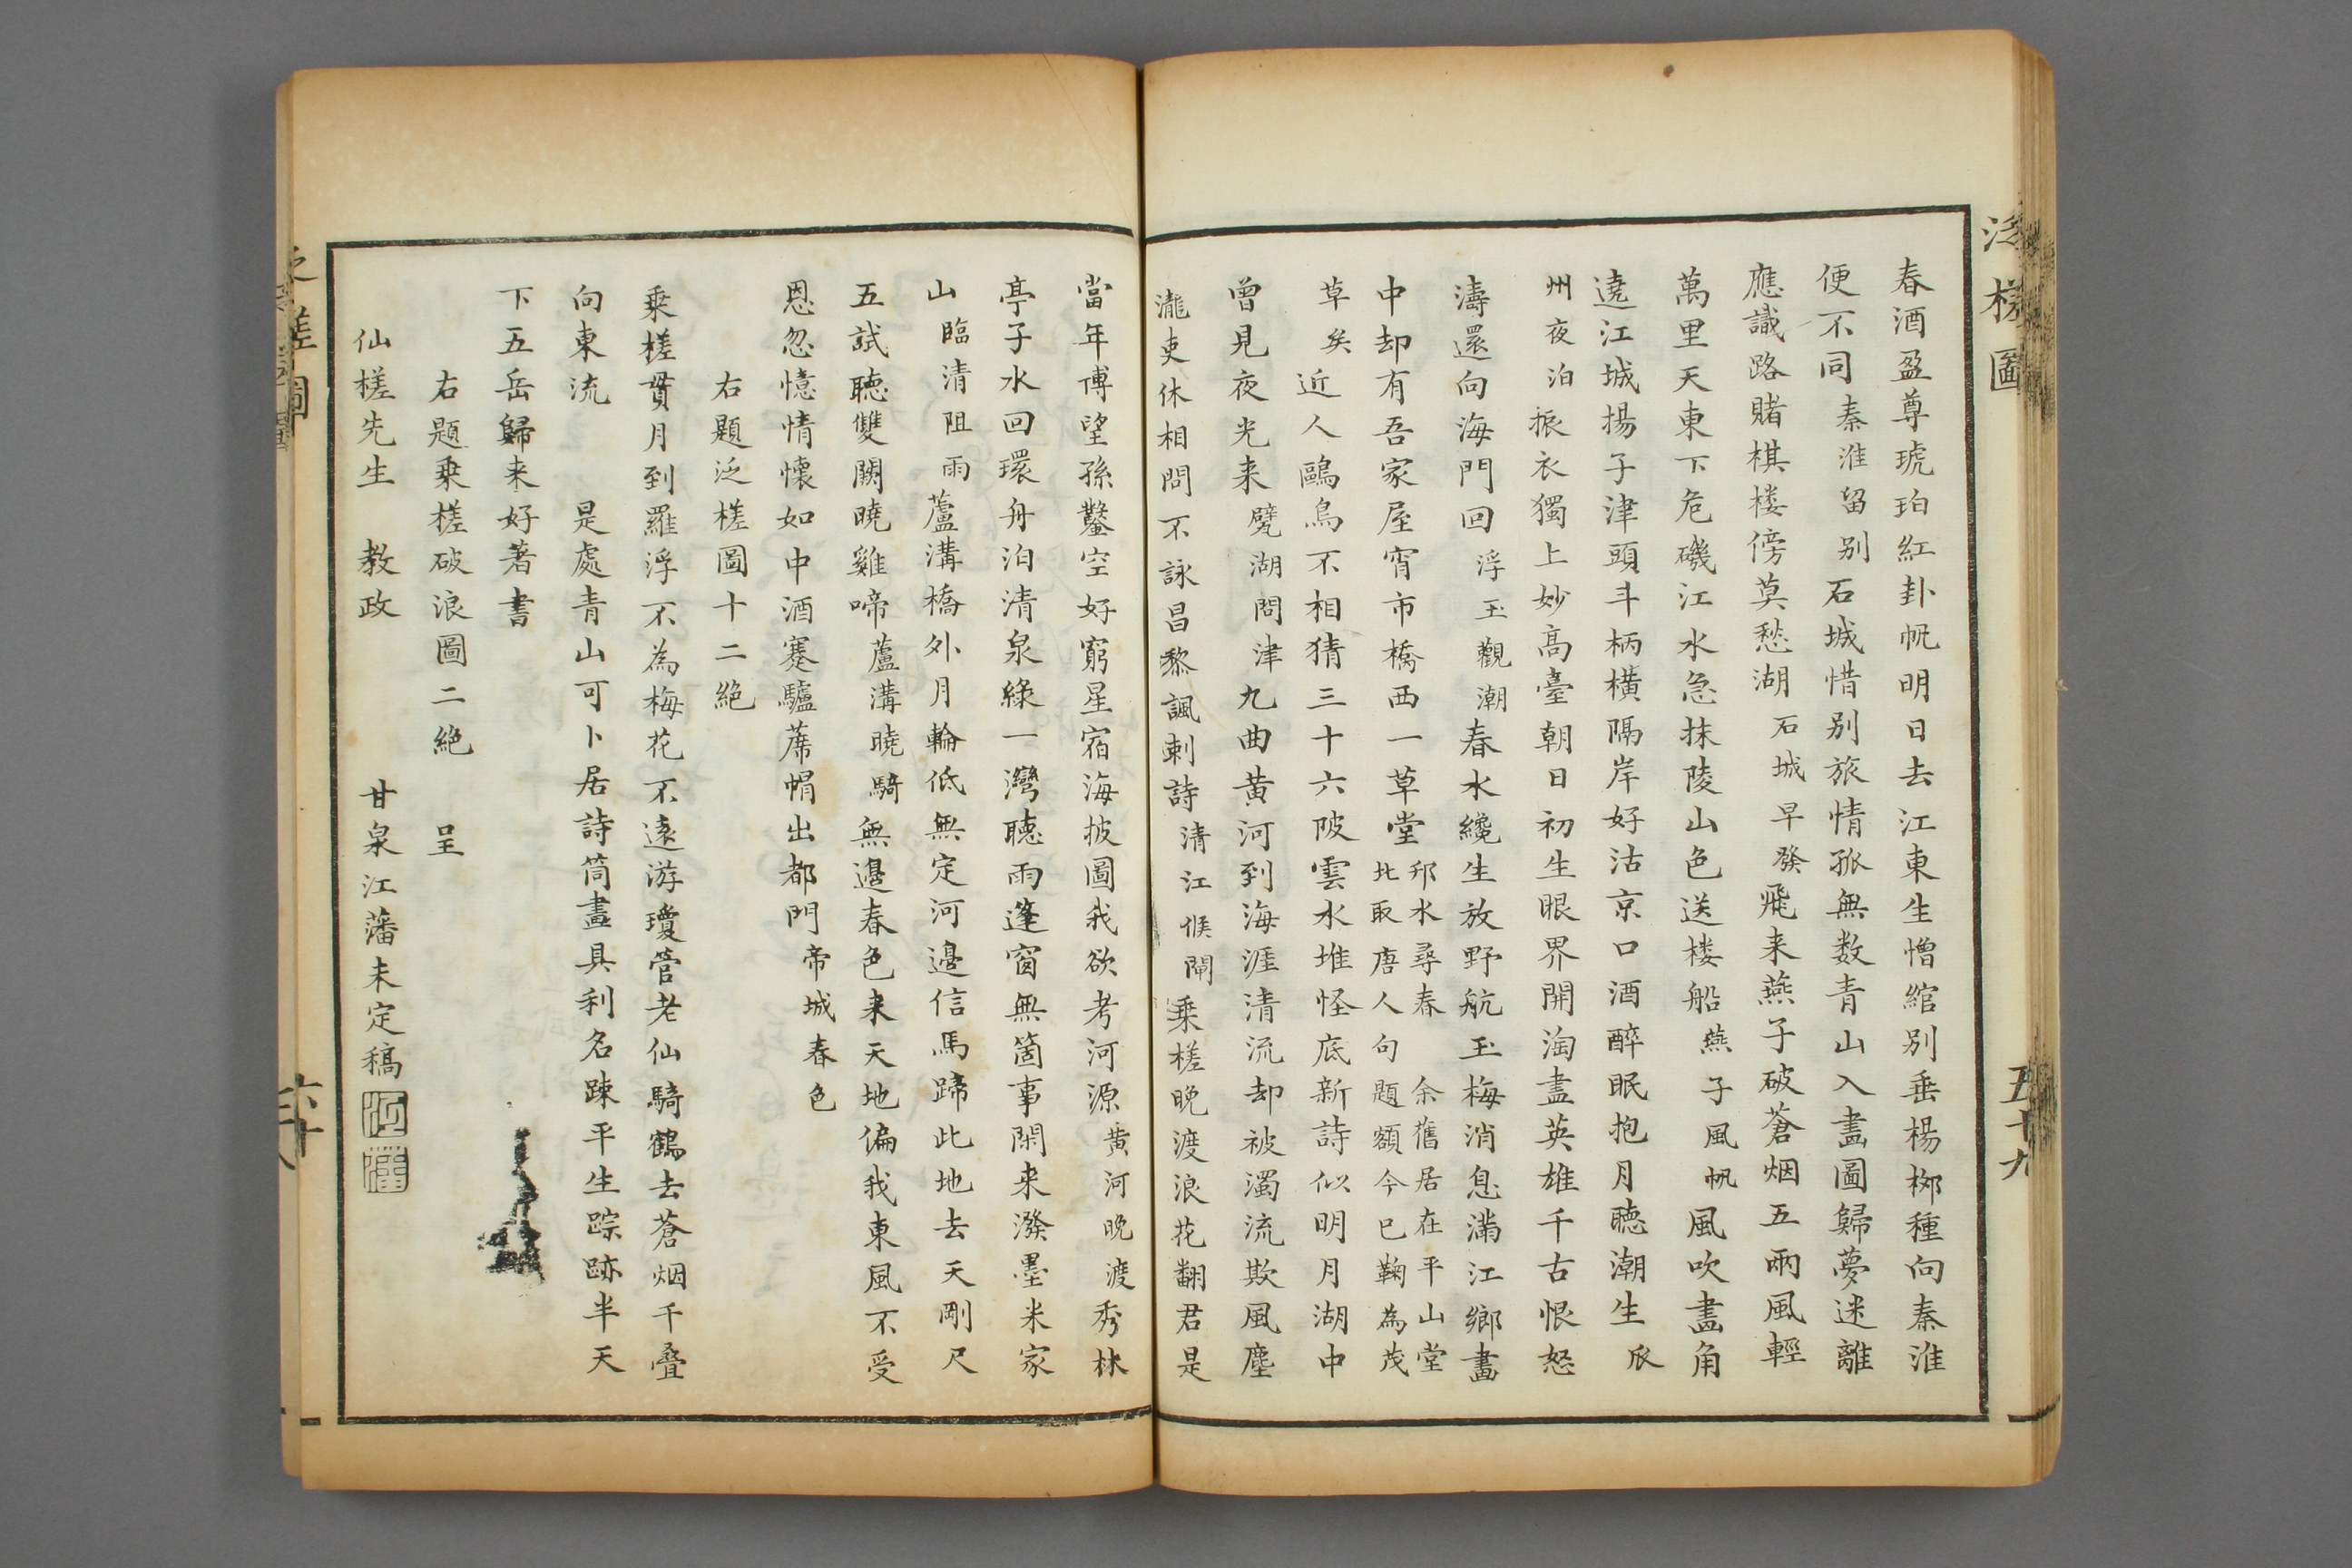 泛槎圖
五十九
春酒盈尊琥珀紅卦帆明日去江東生憎綰別垂楊栁種向秦淮
便不同秦淮留别石城惜别旅情孤無数青山入畫圖歸夢迷離
應識路賭棋楼傍莫愁湖石城早發飛来燕子破蒼烟五兩風輕
萬里天東下危磯江水急抹陵山色送楼船燕子風帆風吹畫角
遶江城揚子津頭斗柄橫隔岸好沽京口酒醉眠抱月聽潮生瓜
州夜泊振衣獨上妙高臺朝日初生眼界開淘盡英雄千古恨怒
濤還向海門回浮玉觀潮春水纔生放野航玉梅消息滿江鄉畵
中却有吾家屋宵市橋西一草堂邗水尋春余舊居在平山堂
北取唐人句題額今已鞠為茂
草矣近人鷗鳥不相猜三十六陂雲水堆怪底新詩似明月湖中
曾見夜光来甓湖問津九曲黄河到海涯清流却被濁流欺風塵
瀧吏休相問不詠昌黎諷刺詩清江候閘乗槎晚渡浪花翻君是
當年博望孫鑿空好窮星宿海披圖我欲考河源黄河晚渡秀林
亭子水回環舟泊清泉綠一灣聽雨蓬窗無箇事閑来潑墨米家
山臨清阻雨蘆溝橋外月輪低無定河邉信馬蹄此地去天剛尺
五試聽雙闕曉雞啼蘆溝曉騎無邉春色来天地偏我東風不受
恩忽憶情懷如中酒蹇驢蓆帽出都門帝城春色
右題泛槎圖十二絶
乗槎貫月到羅浮不為梅花不遠游瓊管老仙騎鶴去蒼烟千疊
向東流 是處青山可卜居詩筒畫具利名踈平生踪跡半天
下五岳歸来好著書
右題乗槎破浪圖二絶 呈
仙槎先生 教政 甘泉江藩未定稿
江藩
槎圖